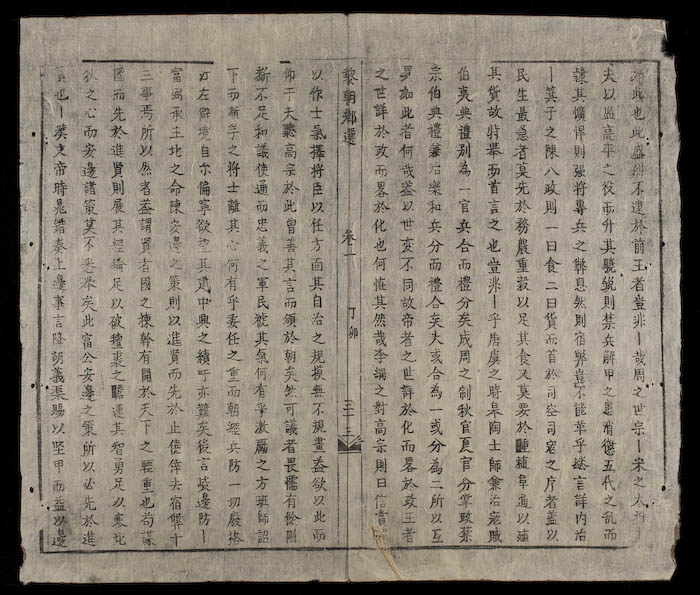 此也此盛烈不遜於前王者豈非丨哉周之世宗丨宋之太
夫以監高平之役而升其驍銳則禁兵解甲之患消懲五代之亂而
隸其獷悍則强將專兵之弊息然則宿弊豈不能革乎继言詳內治
丨箕子之陳八政則一曰食二曰貨而首於司空司寇之序者蓋以
民生最急者莫先於務農重穀以足其食又莫要於植阜通以
其貨故特舉而首言之也豈非丨乎唐虞之時皋陶士師兼治寇賊
伯夷典禮别為一官兵合而禮分矣成周之制秋官夏官分掌政禁
宗伯典禮兼治樂和兵分而禮合矣夫或合為一或分為二所以互
異如此者何哉蓋以世变不同故帝者之世詳於化而畧於政王者
之世詳於政而畧於化也何恠其然哉李綱之對高宗則曰信賞
黎朝鄉選 卷一 丁卯 三十三
以作士氣擇將臣以任方面其自治之規摸無不規畫蓋欲以此而
仰干天聽高宗於此曾善其言而頒於朝矣然可議者畏懦有餘剛
斷不足和議使通而忠義之軍民褫其氣何有乎激厲之方班師詔
下而獮子之將士離其心何有乎委任之重而朝經兵防一切廢墜
江左僻境自尔偏寧欲望其建中興之績吁亦難矣後言峻邊防丨
富鄭承主北之命陳安邊之策則以進賢而先於止僥倖去宿弊十
三事焉所以然者蓋謂賢者國之楝幹有關於天下之輕重也苟謀
國而先於進賢則展其經綸足以破氊裘之膽運其智勇足以
狄之心而安邊諸策莫不悉舉矣此富公安邊之策所以必先於進
也丨漢文帝時晁錯奏上邊事言降胡義渠賜以坚甲而益以邊